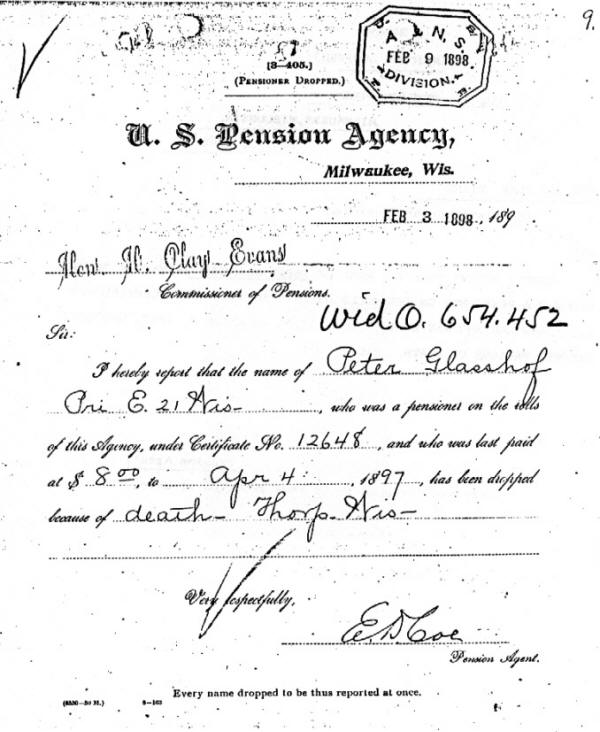 9.
A & N. S.
FEB 9 1898
DIVISION.
[3-405.]
(PENSIONER DROPPED.)
U. S. Pension Agency,
Milwaukee, Wis.
FEB 3 1898, 189
Hon. H. Clay Evans
Commissioner of Pensions.
Wid O. 654.452
Sir:
I hereby report that the name of Peter Glasshof
Pri E. 21 Wis-, who was a pensioner on the rolls
of this Agency, under Certificate No. 12648, and who was last paid
at $ 8 00, to Apr 4, 1897, has been dropped
because of death- Thorp Wis-
Very respectfully,
E D Coe
Pension Agent.
Every name dropped to be thus reported at once.